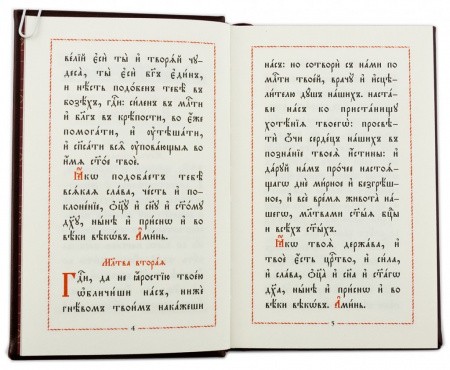 ве́лїй є҆сѝ ты̀ и҆ творѧ́й чꙋ-
деса̀, ты̀ є҆сѝ бг҃ъ є҆ди́нъ,
и҆ нѣ́сть подо́бенъ тебѣ̀ въ
возѣ́хъ, гдⷭ҇и: си́ленъ въ млⷭ҇ти
и҆ бл҃гъ въ крѣ́пости, во є҆́же
помога́ти, и҆ ᲂу҆тѣша́ти,
и҆ сп҃са́ти всѧ̑ ᲂу҆пова́ющыѧ во
и҆́мѧ ст҃о́е твоѐ.
Ꙗ҆́кѡ подоба́етъ тебѣ̀
всѧ́каѧ сла́ва, че́сть и҆ по-
клоне́нїе, ѻ҆ц҃ꙋ̀ и҆ сн҃ꙋ и҆ ст҃о́мꙋ
дх҃ꙋ, ны́нѣ и҆ при́снѡ и҆ во
вѣ́ки вѣкѡ́въ. А҆ми́нь.
Мл҃тва вторая
Гдⷭ҇и, да не ꙗ҆́ростїю твое́ю
ѡ҆бличи́ши на́съ, нижѐ
гнѣ́вомъ твои́мъ нака́жеши
4
на́съ: но сотворѝ съ на́ми по
млⷭ҇ти твое́й, врачꙋ̀ и҆ и҆сцѣ-
ли́телю дꙋ́шъ на́шихъ. наста́-
ви на́съ ко приста́нищꙋ
хотѣ́нїѧ твоегѡ̀: просвѣ-
тѝ ѻ҆́чи серде́цъ на́шихъ въ
позна́нїе твоеѧ̀ и҆́стины: и҆
да́рꙋй на́мъ про́чее настоѧ́-
щагѡ днѐ ми́рное и҆ безгрѣ́ш-
ное, и҆ всѐ вре́мѧ живота̀ на́-
шегѡ, мл҃твами ст҃ы́ѧ бц҃ы
и҆ всѣ́хъ ст҃ы́хъ.
Ꙗ҆́кѡ твоѧ̀ держа́ва, и҆
твоѐ є҆́сть црⷭ҇тво, и҆ си́ла,
и҆ сла́ва, ѻ҆ц҃а̀ и҆ сн҃а и҆ ст҃а́гѡ
дх҃а, ны́нѣ и҆ при́снѡ и҆ во
вѣ́ки вѣкѡ́въ. А҆ми́нь.
5